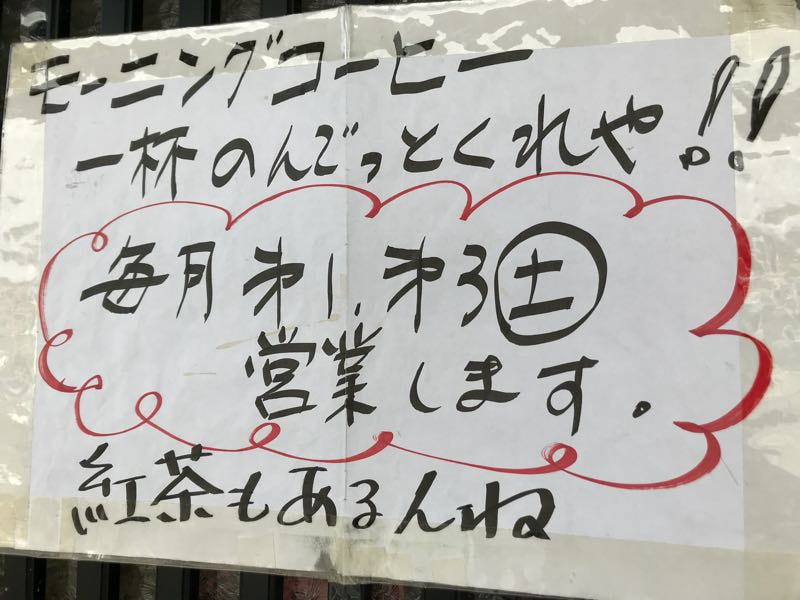 モーニングコーヒー
一杯のんごっとくれや!!
毎月第1,第3㊏
営業します。
紅茶もあるんね